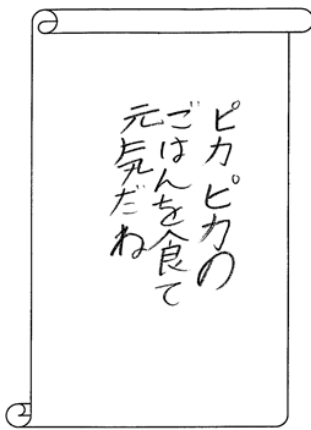 ピカピカの
ごはんを食て
元気だね